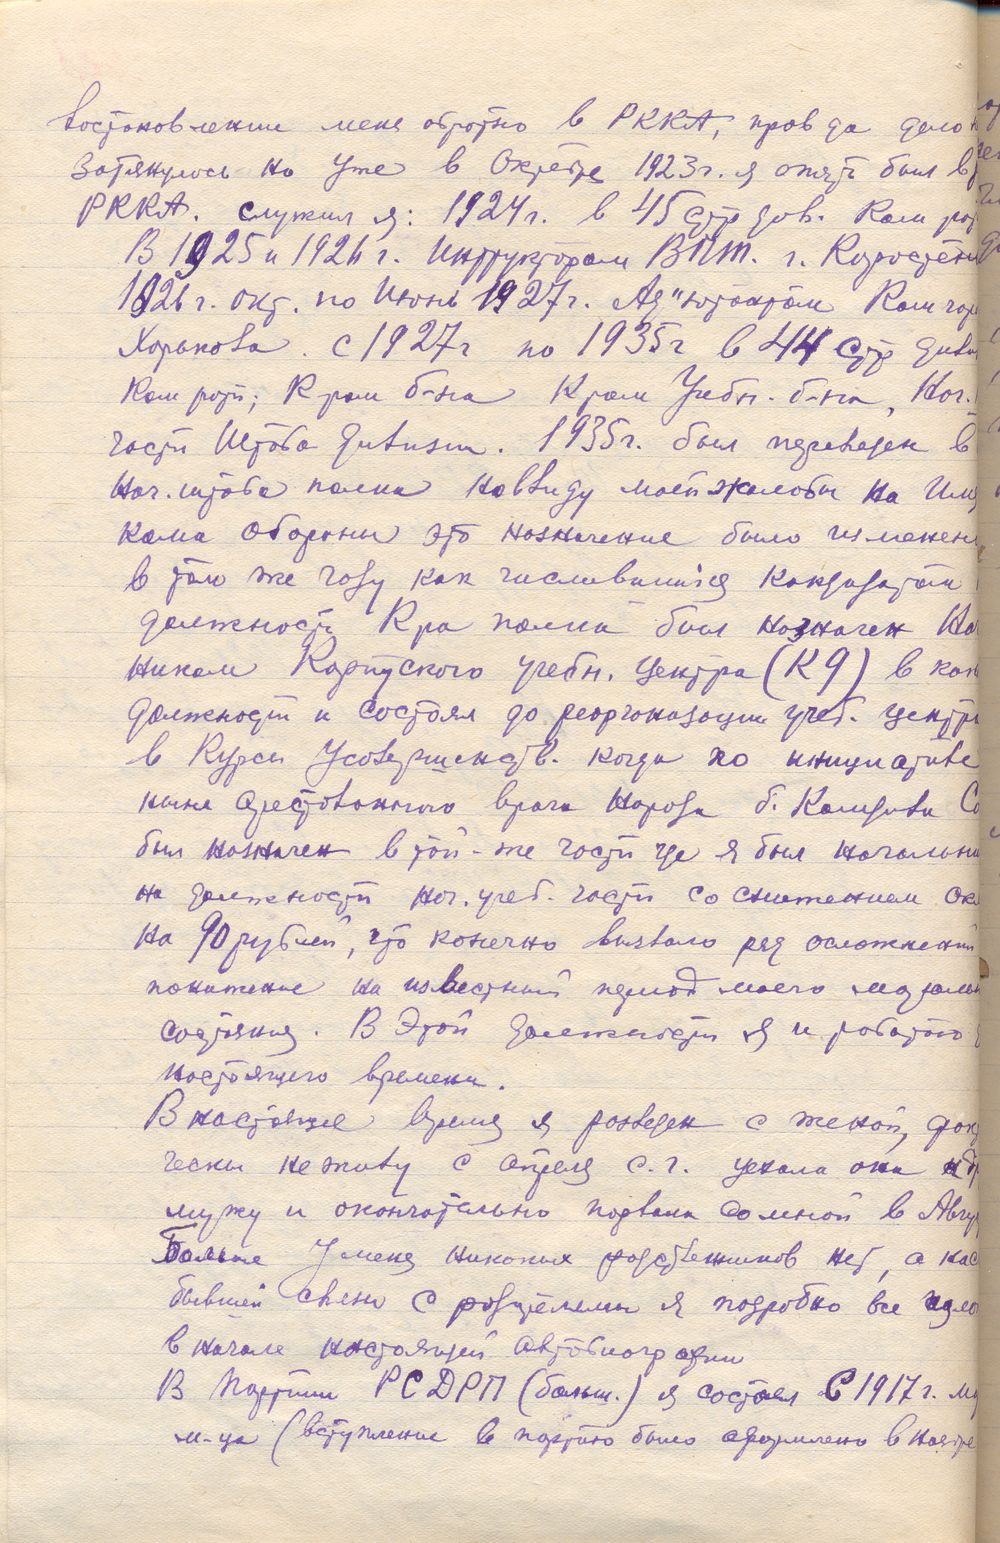 востановлении меня обратно в РККА, правда дело
затянулось но уже в Октебре 1923г. я опять был в
РККА. служил я: 1924г. в 45 стр див. Ком рот
В 1925 и 1926г. Инструктором ВПТ. г. Коростень
1926г. окт. по Июнь 1927г. Ад"ютантом Ком гар
Харькова. с 1927г по 1935г в 44 стр диви
Ком роты; Кром б-на Кром Учебн. б-на, Нач.
части Штаба дивизии. 1935г. был переведен в
Нач. штаба полка но ввиду моей жалобы на Имя
кома обороны это назначение было изменен
в том же году как числившийся кандидатом
должность Кра полка был назначен На
ником Корпуского учебн. центра (К9) в како
должности и состоял до реорганизации учеб. центра
в Курсы Усовершенств. когда по инициативе
ныне арестованного врага народа б. Комдива Со
был назначен в той-же части где я был начальни
на должности нач. учеб. части со снижением ок
на 90 рублей, что конечно вызвало ряд осложнений
понижение на известный период моего материаль
состояния. В Этой должности я и работаю
настоящего времени.
В настоящее время я разведен с женой, фак
чески не живу с апреля с.г. уехала она к
мужу и окончательно порвала со мной в Авгу
Больше У меня никаких родственников нет, а кас
бывшей связи с родителями я подробно все изло
в начале настоящей автобиографии
В Партии РСДРП (больш.) я состоял с 1917г. м
м-ца (вступление в партию было оформлено в Ноябре